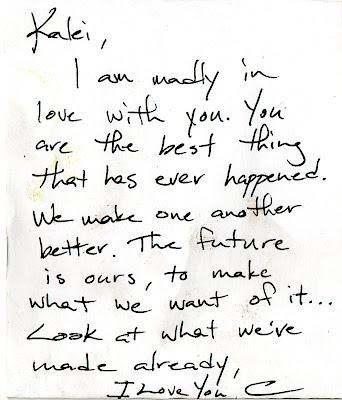 Kalei,
I am madly in
love with you. You
are the best thing
that has ever happened.
We make one another
better. The future
is ours, to make
what we want of it...
Look at what we've
made already,
I Love You C